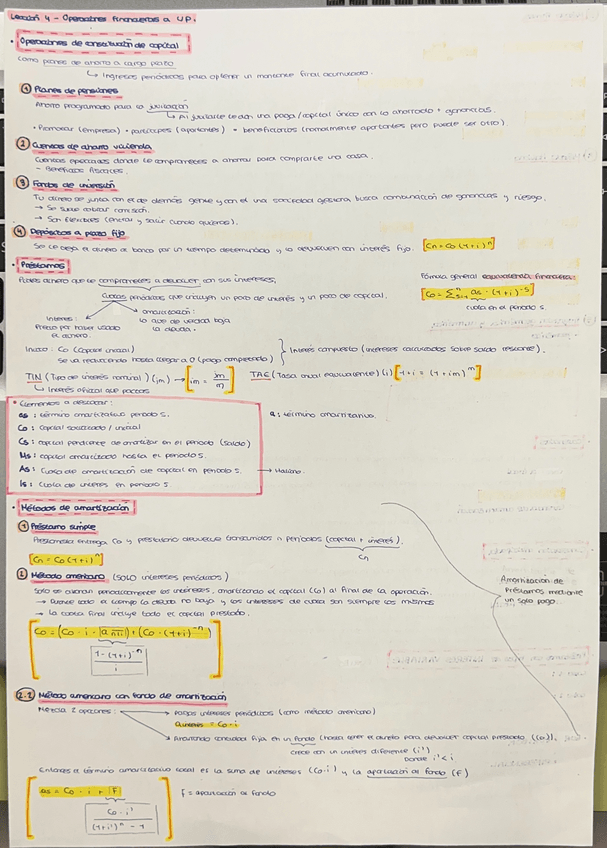 Lección 4 - Operaciones Financieras a L/P.
• Operaciones de constitución de capital
Como planes de ahorro a largo plazo
↳ Ingresos periódicos para obtener un montante final acumulado.
① Planes de pensiones
Ahorro programado para la jubilación
↳ Al jubilarte te dan una paga/capital único con lo ahorrado + ganancias.
• Promotor (empresa) • partícipes (aportantes) • beneficiarios (normalmente aportantes pero puede ser otro)
② Cuentas de ahorro vivienda
Cuentas especiales donde te comprometes a ahorrar para comprarte una casa.
- Beneficios fiscales.
③ Fondos de inversión
Tu dinero se junta con el de demás gente y con él una sociedad gestora busca combinación de ganancias y riesgo.
→ Se suele cobrar comisión.
→ Son flexibles (entrar y salir cuando quieras).
④ Depósitos a plazo fijo
Se le deja el dinero al banco por un tiempo determinado y lo devuelven con interés fijo. [Cn = Co (1+i)^n]
• Préstamos
Pides dinero que te comprometes a devolver con sus intereses,
Fórmula general equivalencia financiera:
Cuotas periódicas que incluyen un poco de interés y un poco de capital.
[Co = Σ as · (1+i)^-s]
cuota en el periodo s
Interés:
Precio por haber usado el dinero.
amortización:
lo que de verdad baja la deuda.
Inicio: Co (Capital inicial)
se va reduciendo hasta llegar a 0 (pago completado)
} Interés compuesto (intereses calculados sobre saldo restante).
TIN (Tipo de interés nominal) (jm) → [im = jm/m]
TAE (Tasa anual equivalente) (i) [1+i = (1+im)^m]
↳ Interés oficial que pactas
• Elementos a destacar:
as: término amortizativo periodo s.
a: término amortizativo.
Co: Capital solicitado / inicial
Cs: capital pendiente de amortizar en el periodo (saldo)
Ms: capital amortizado hasta el periodo s.
As: Cuota de amortización de capital en periodo s.
Is: Cuota de interés en periodo s.
• Métodos de amortización
① Préstamo simple
Prestamista entrega Co y prestatario devuelve transcurridos n periodos (capital + interés).
Cn
[Cn = Co (1+i)^n]
Amortización de
Préstamos mediante
un solo pago.
② Método americano (solo intereses periódicos)
Solo se abonan periódicamente los intereses, amortizando el capital (Co) al final de la operación.
→ Durante todo el tiempo la deuda no baja y los intereses de cuota son siempre los mismos
→ La cuota final incluye todo el capital prestado.
[Co = (Co · i · a n⌉i) + (Co · (1+i)^-n)]
1 - (1+i)^-n / i
2.2 Método americano con fondo de amortización
Mezcla 2 opciones:
→ pagas intereses periódicos (como método americano)
a interés = Co · i
→ Ahorrando cantidad fija en un fondo (hasta tener el dinero para devolver capital prestado (Co)).
crece con un interés diferente (i')
donde i' < i
Entonces el término amortizativo total es la suma de intereses (Co·i) y la aportación al fondo (F)
[as = Co · i + F]
F = aportación al fondo
Co · i' / (1+i')^n - 1